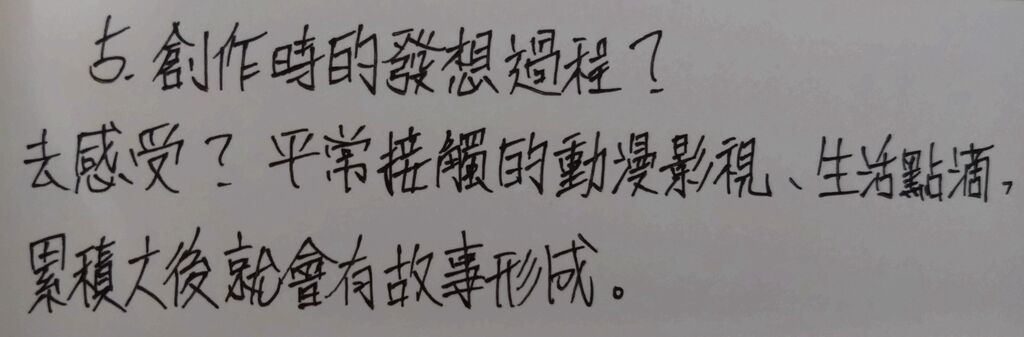 5. 創作時的發想過程？
去感受？平常接觸的動漫影視、生活點滴，
累積大後就會有故事形成。